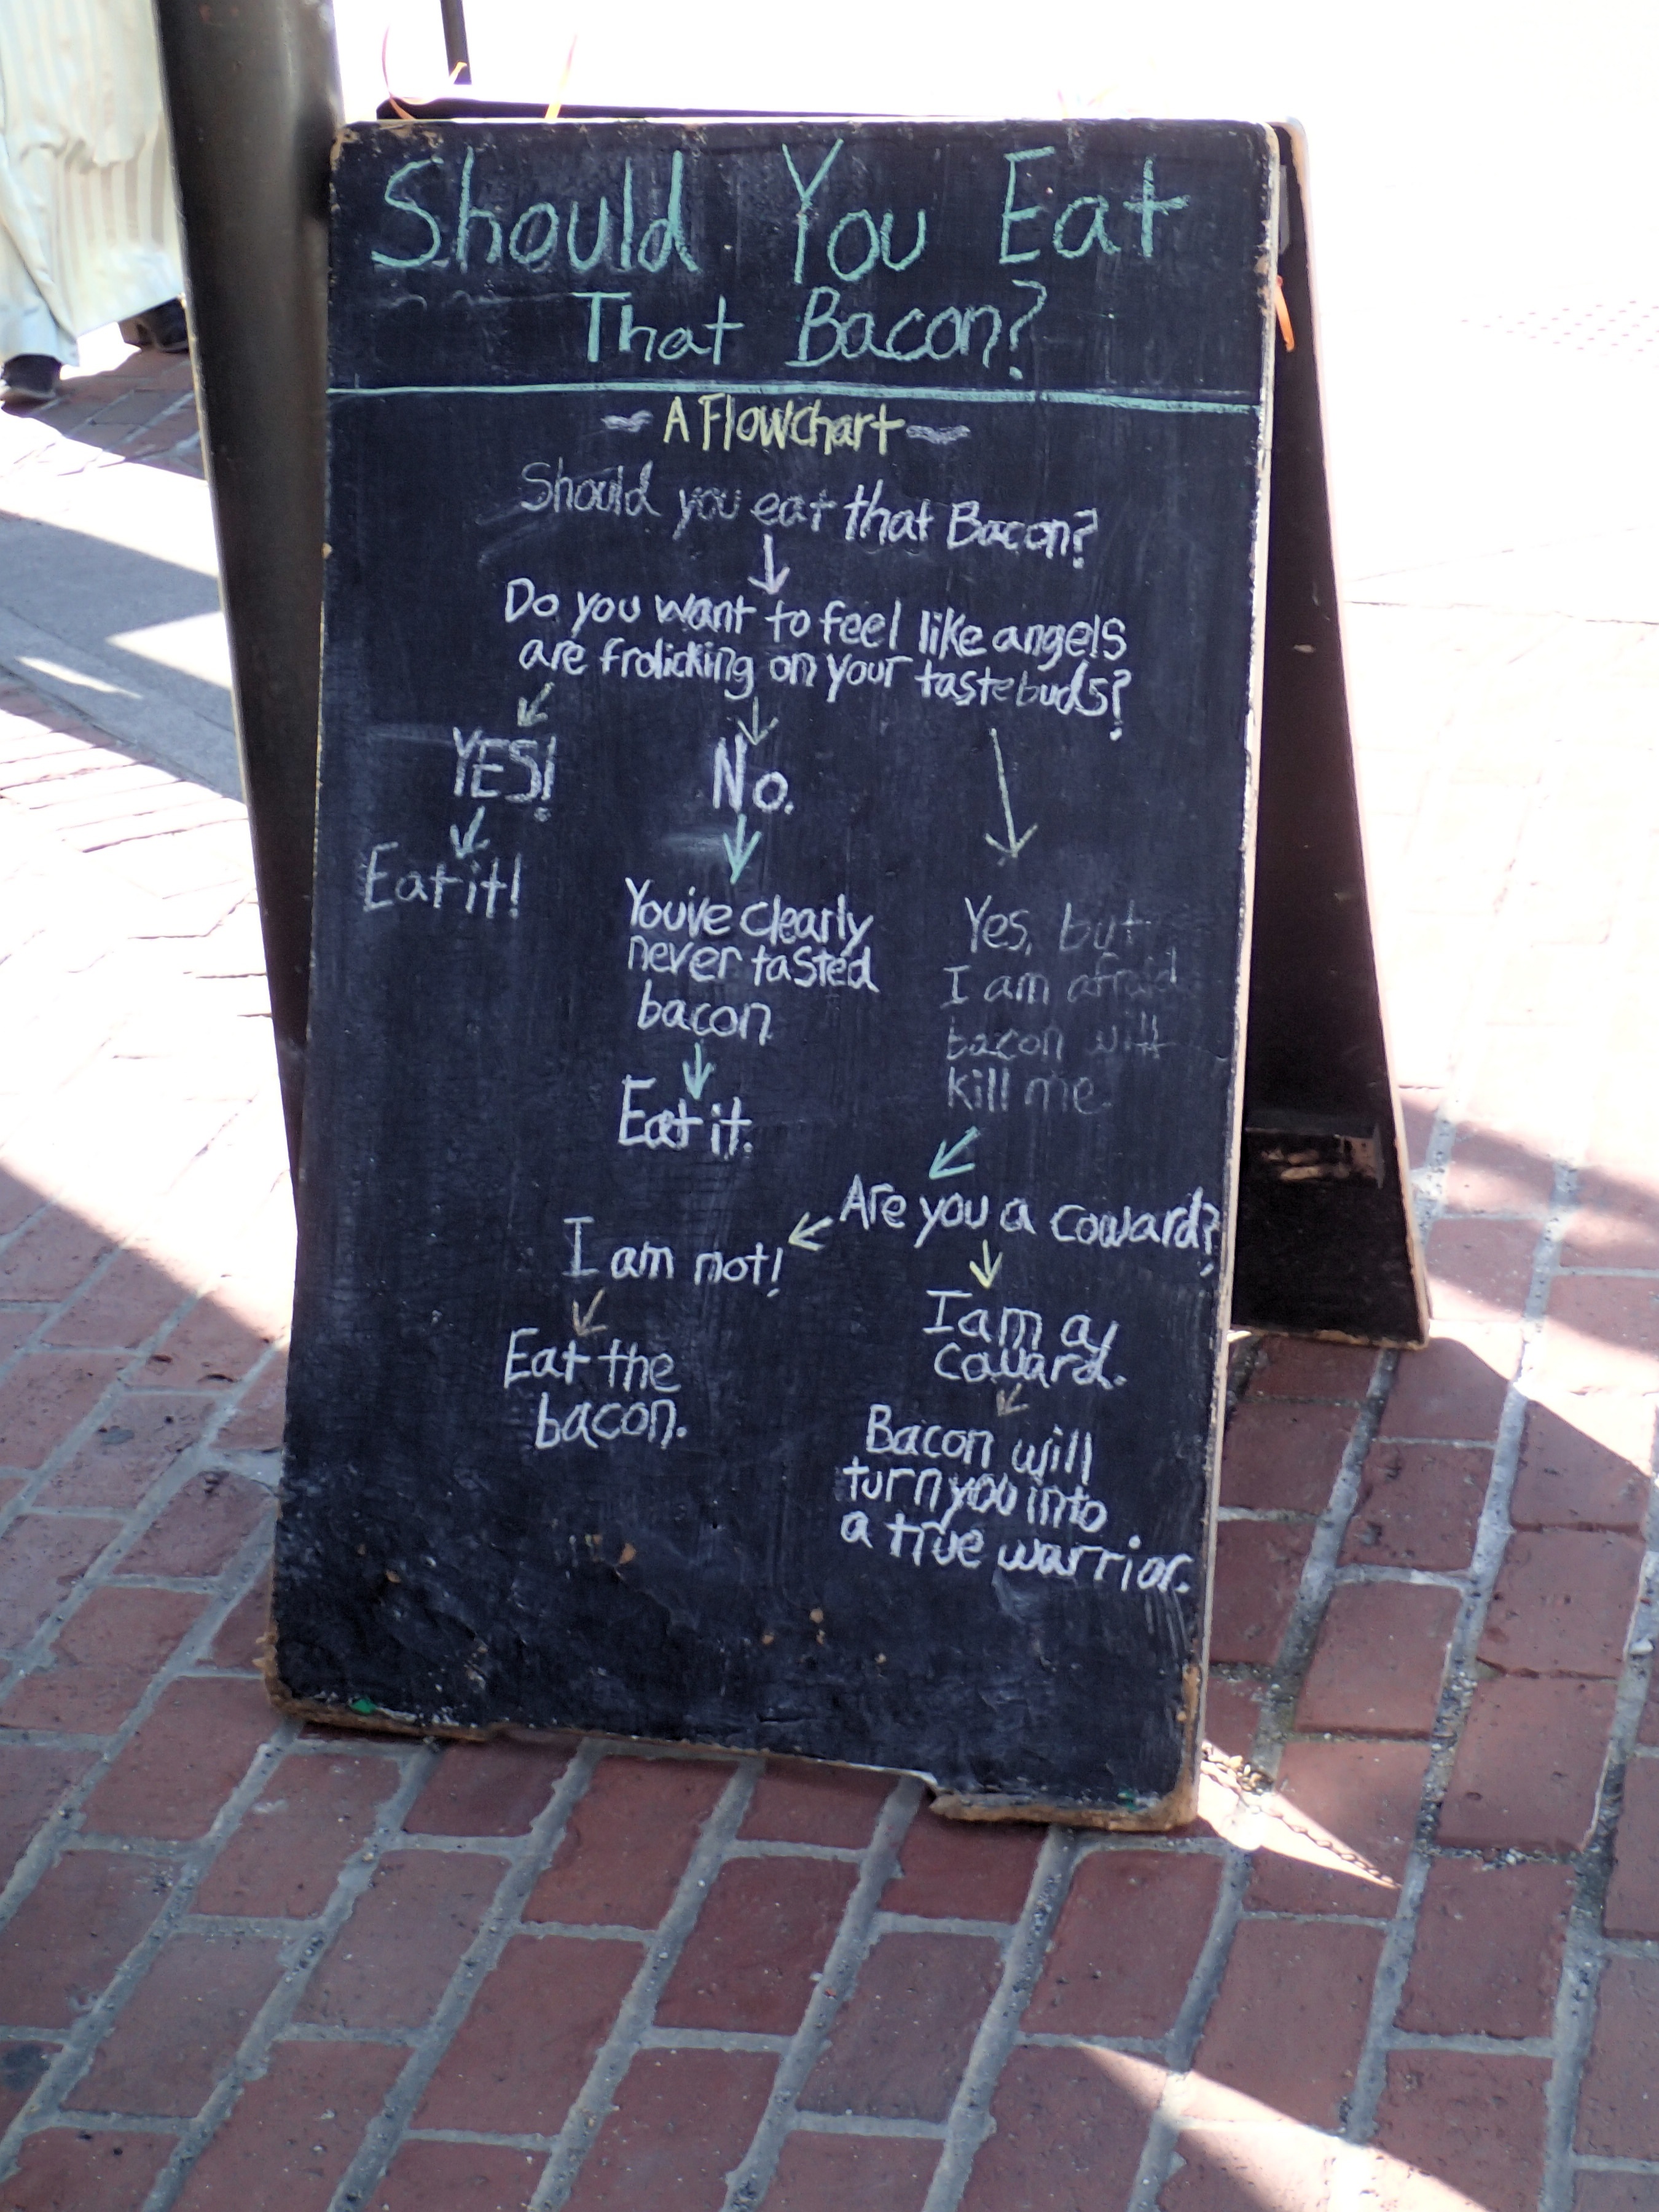 Should You Eat
That Bacon?
A Flowchart
Should you eat that Bacon?
Do you want to feel like angels
are frolicking on your tastebuds?
YES!
Eat it!
No.
You've clearly
never tasted
bacon
Eat it.
Yes, but
I am afraid
bacon will
kill me.
Are you a coward?
I am not!
Eat the
bacon.
I am a
coward.
Bacon will
turn you into
a true warrior.